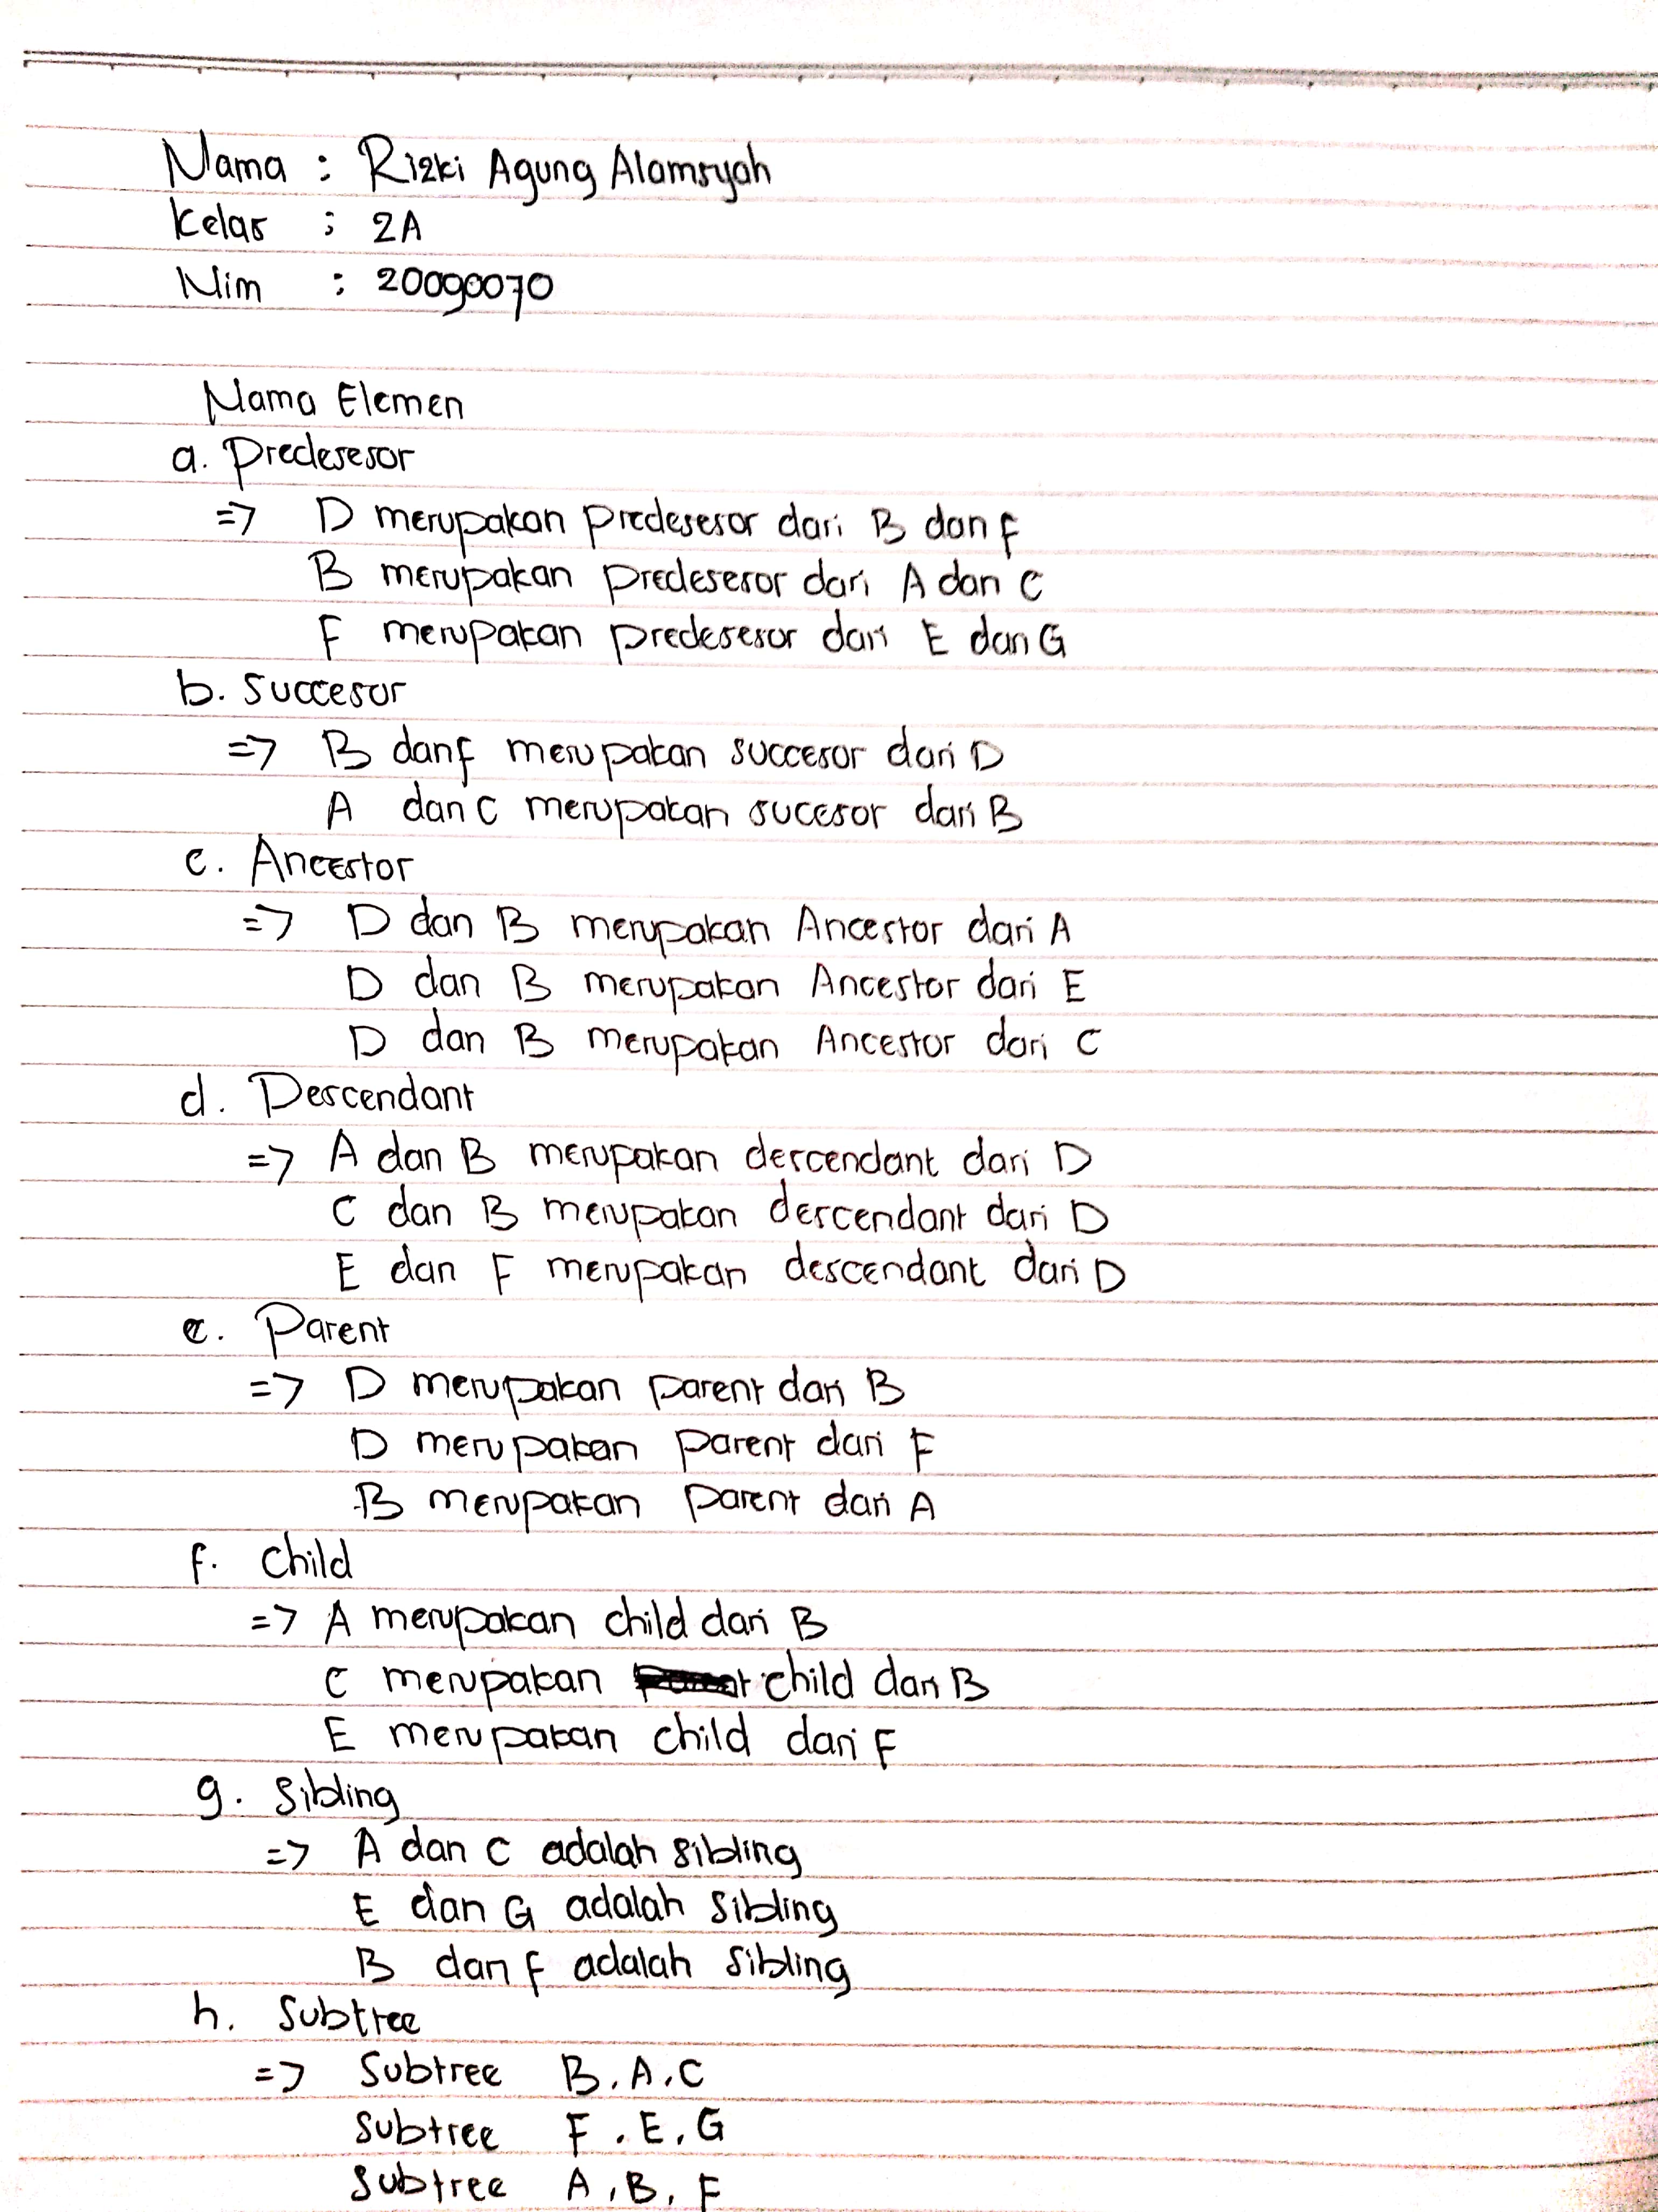 Nama : Rizki Agung Alamsyah
Kelas : 2A
Nim : 20090070
Nama Elemen
a. Predesesor
=> D merupakan predesesor dari B dan F
B merupakan predesesor dari A dan C
F merupakan predesesor dari E dan G
b. Succesor
=> B dan F merupakan succesor dari D
A dan C merupakan sucesor dari B
c. Ancestor
=> D dan B merupakan Ancestor dari A
D dan B merupakan Ancestor dari E
D dan B merupakan Ancestor dari C
d. Descendant
=> A dan B merupakan descendant dari D
C dan B merupakan descendant dari D
E dan F merupakan descendant dari D
e. Parent
=> D merupakan parent dari B
D merupakan parent dari F
B merupakan parent dari A
f. Child
=> A merupakan child dari B
C merupakan child dari B
E merupakan child dari F
g. Sibling
=> A dan C adalah sibling
E dan G adalah sibling
B dan F adalah sibling
h. Subtree
=> Subtree B, A, C
Subtree F, E, G
Subtree A, B, F